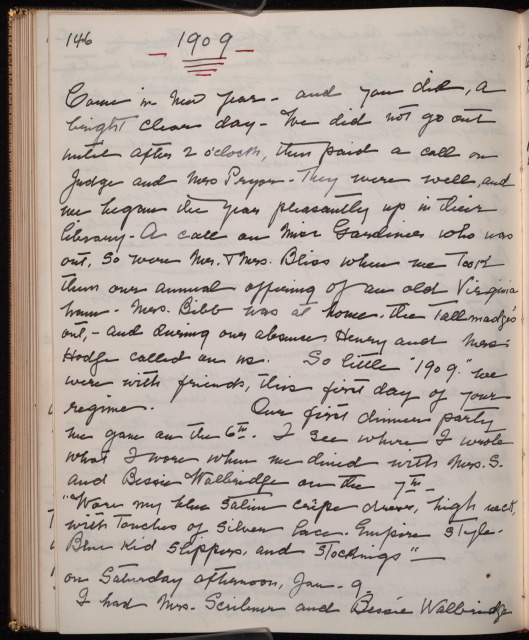 146
- 1909 -
Came in New Year - and you did, a
bright clear day - We did not go out
until after 2 o'clock, then paid a call on
Judge and Mrs Pryor - They were well, and
we began the year pleasantly up in their
library - A call on Miss Gardiner who was
out, so were Mr. & Mrs. Bliss when we took
them our annual offering of an old Virginia
ham - Mrs. Bibb was at home. the Tallmadge's
out, - and during our absence Henry and Mrs.
Hodge called on us. So little "1909" we
were with friends, this first day of your
regime. Our first dinner party
we gave on the 6th. I see where I wrote
what I wore when we dined with Mrs. S.
and Bessie Walbridge on the 7th -
"Wore my blue satin crêpe dress, high neck,
with touches of silver lace. Empire style -
Blue Kid slippers, and stockings" -
on Saturday afternoon, Jan - 9
I had Mrs. Scribner and Bessie Walbridge